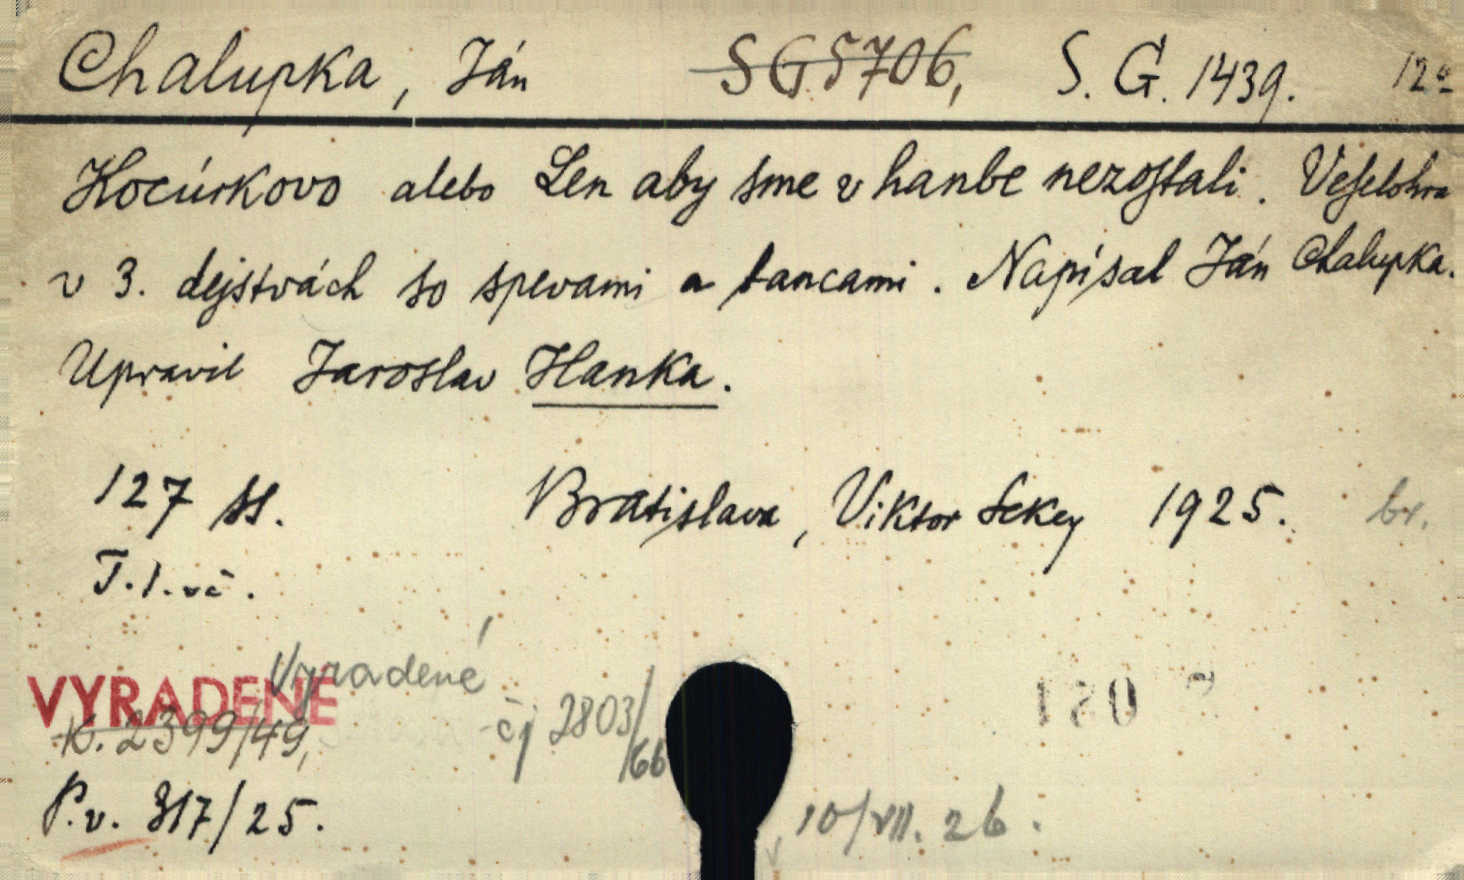 Chalupka, Ján SG5706, S. G. 1439. 12°
Kocúrkovo alebo Len aby sme v hanbe nezostali. Veselohra
v 3. dejstvách so spevami a tancami. Napísal Ján Chalupka.
Upravil Jaroslav Hanka.
127 ss. Bratislava, Viktor Sekey 1925. br.
T. l. vč.
VYRADENÉ Vyradené
K. 2399/49, čj 2803/66
P.v. 317/25. 10/VII. 26.